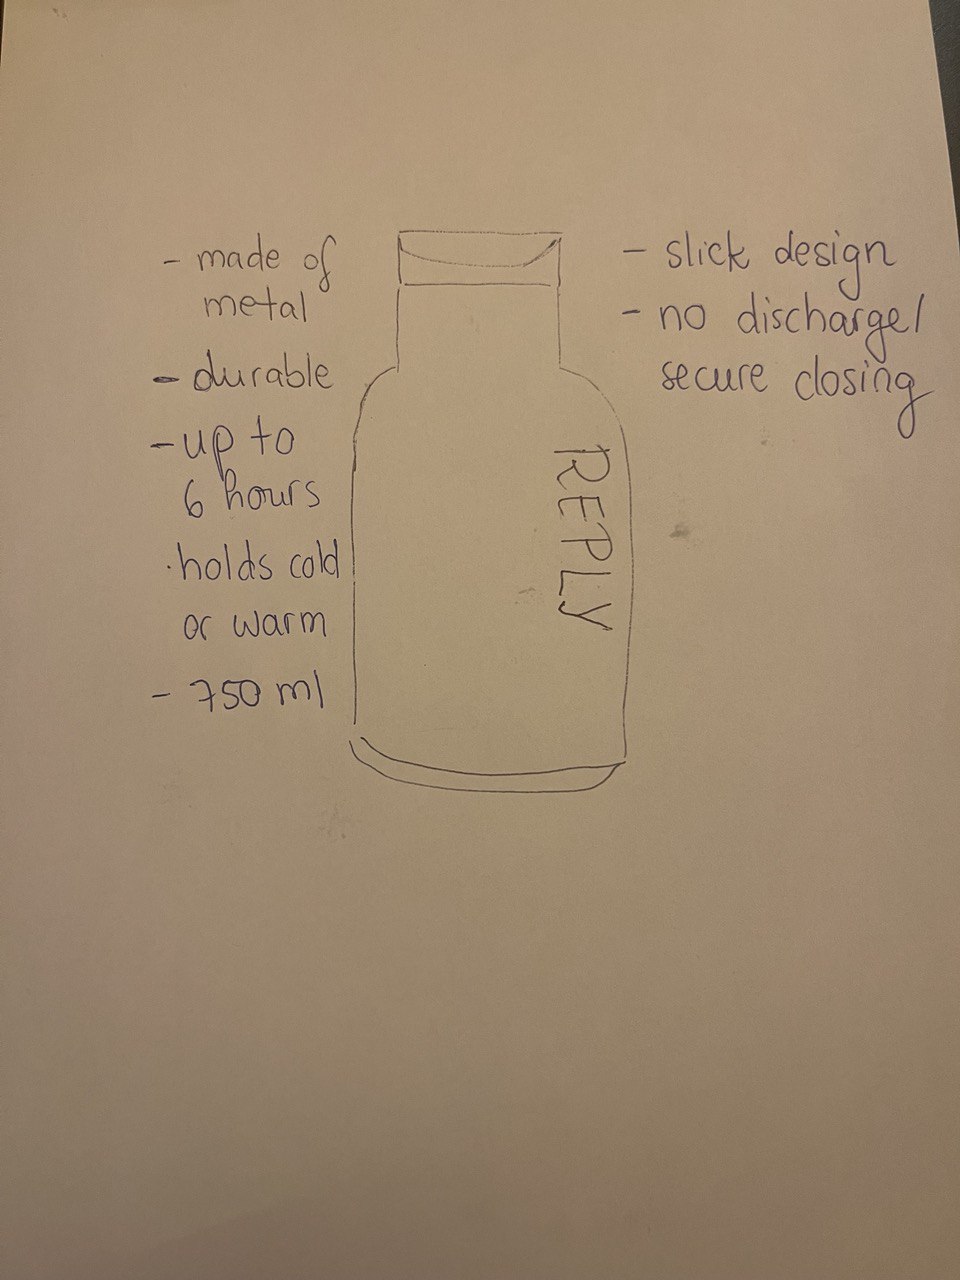 - made of
metal
- durable
- up to
6 hours
· holds cold
or warm
- 750 ml
- slick design
- no discharge/
secure closing
REPLY